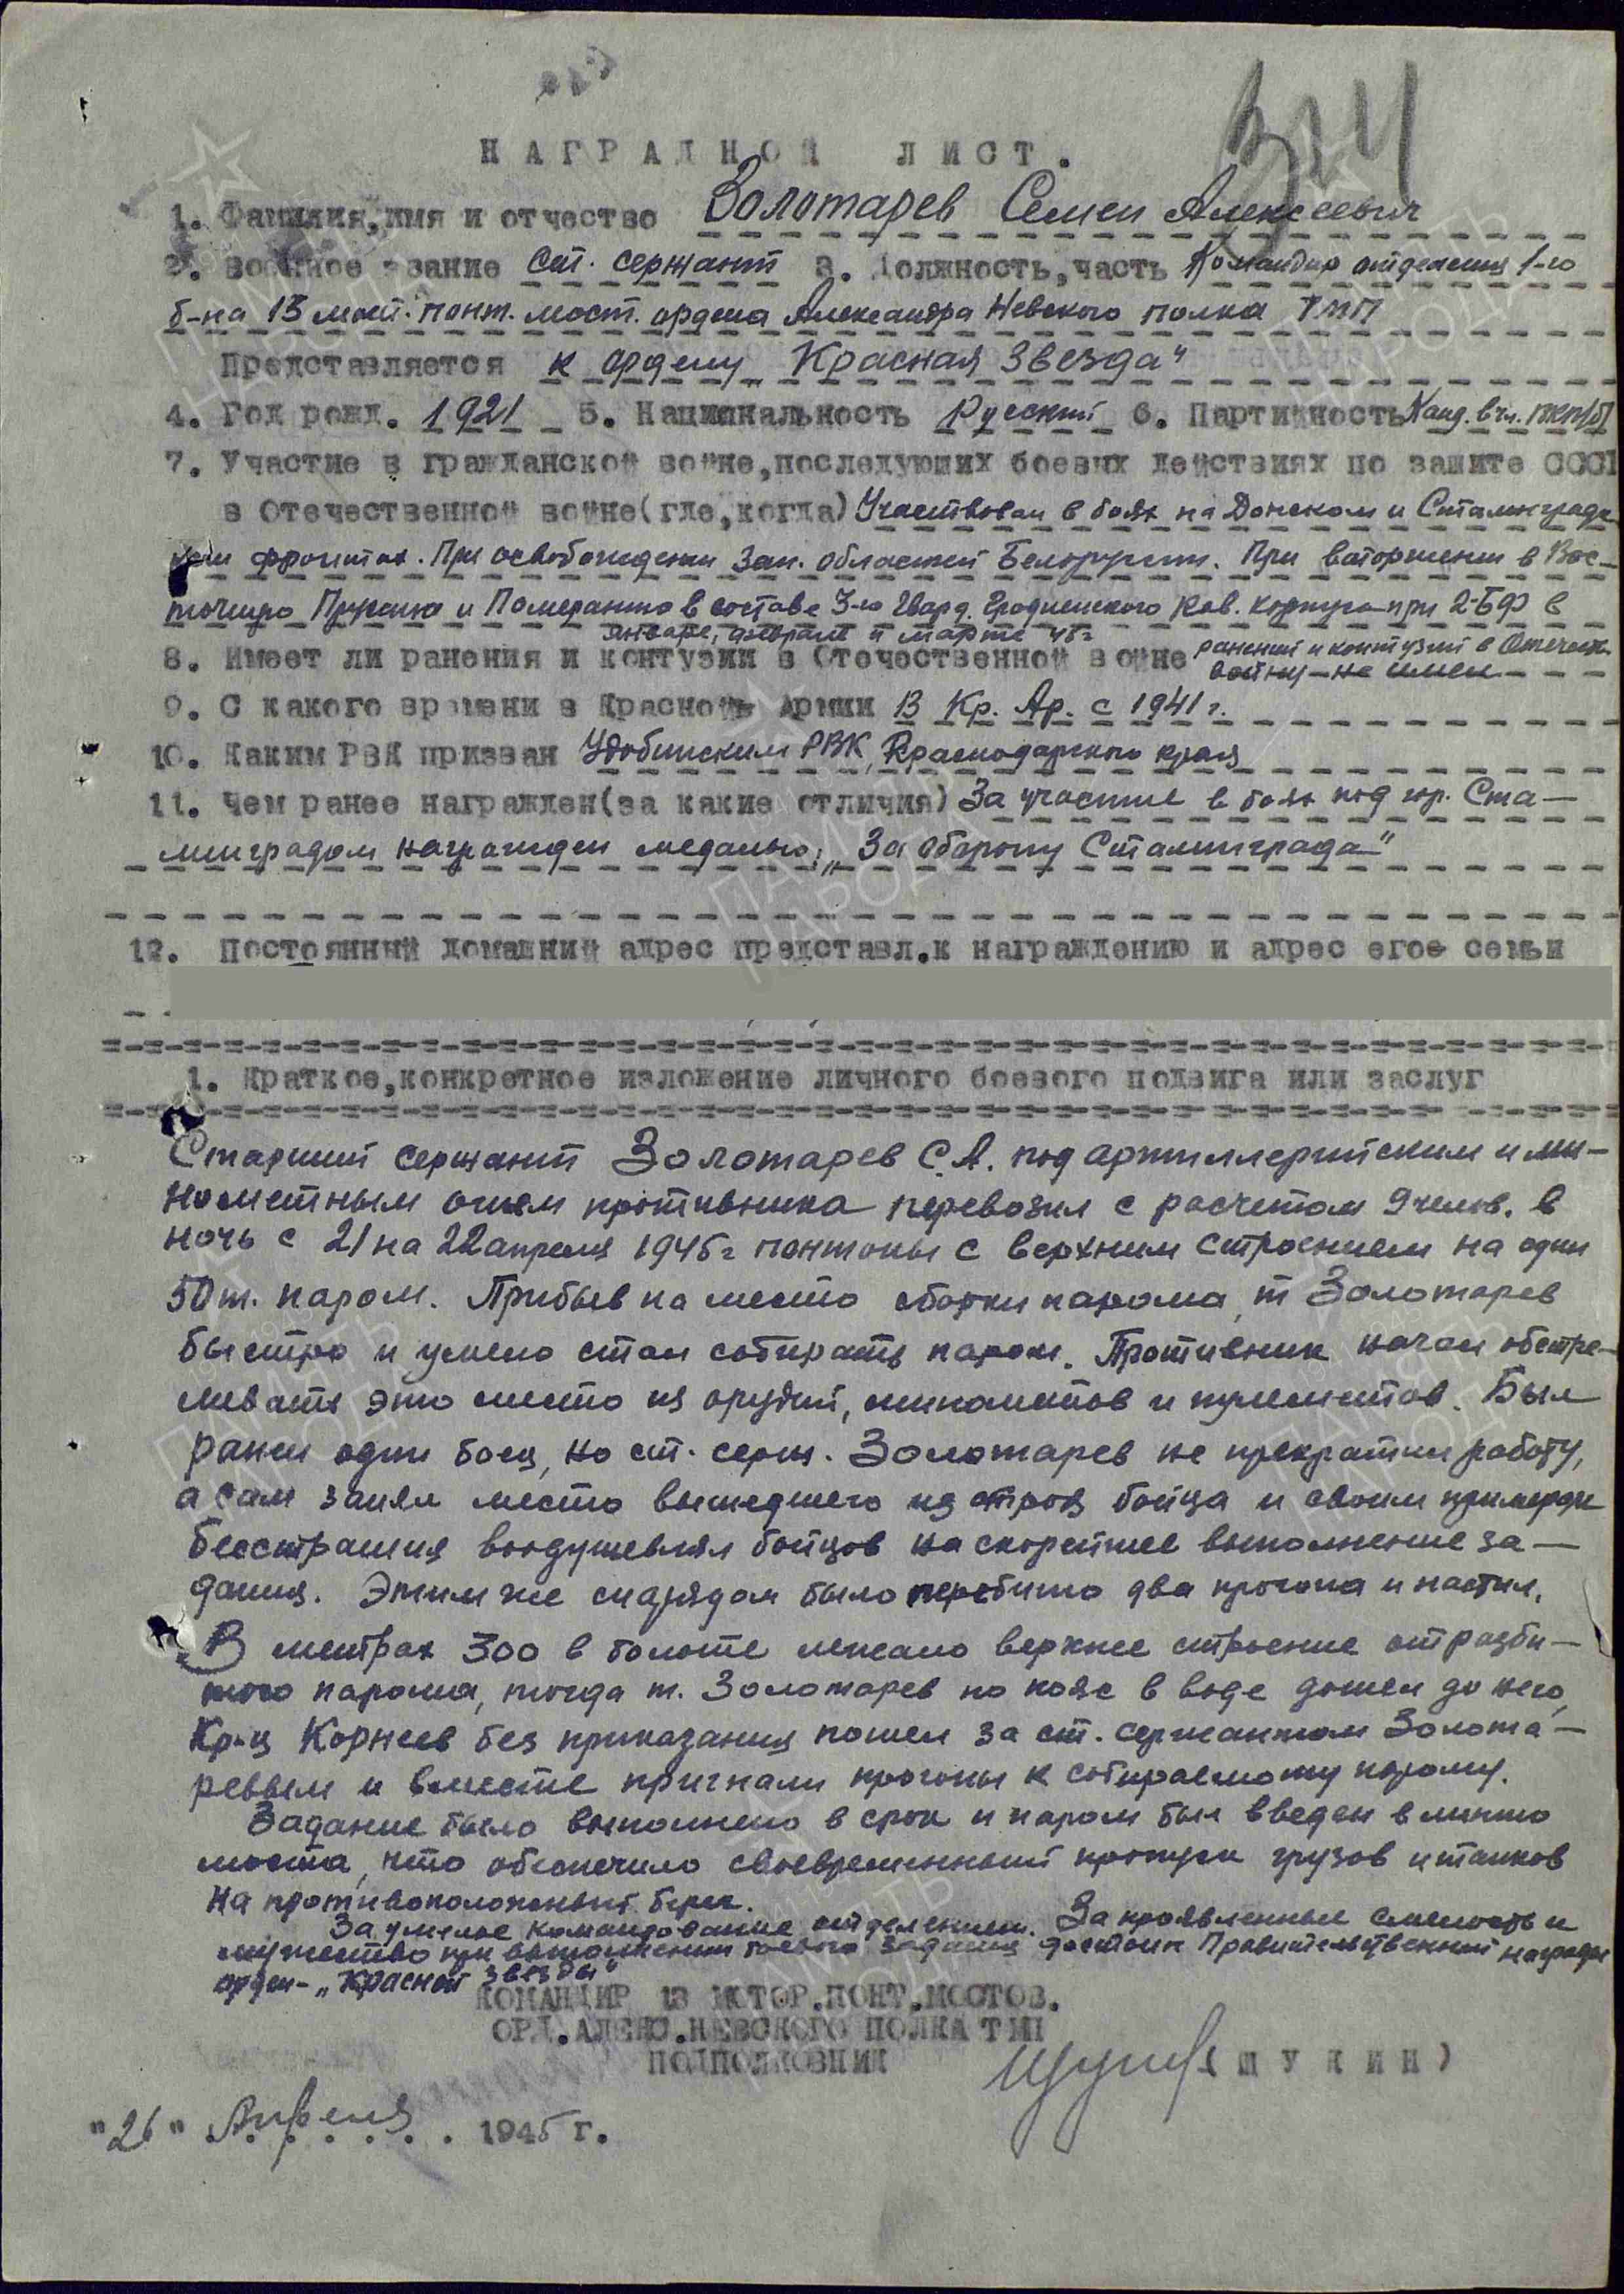 314
НАГРАДНОЙ ЛИСТ.
1. Фамилия, имя и отчество Золотарев Семен Алексеевич
2. Военное звание ст. сержант 3. Должность, часть Командир отделения 1-го
б-на 13 мот. понт. мост. ордена Александра Невского полка ТМП
Представляется к ордену „Красная Звезда"
4. Год рожд. 1921 5. Национальность Русский 6. Партийность Канд. в чл. ВКП/б/
7. Участие в гражданской войне, последующих боевых действиях по защите СССР
в Отечественной войне (где, когда) Участвовал в боях на Донском и Сталинград-
ском фронтах. При освобождении Зап. областей Белоруссии. При вторжении в Вос-
точную Пруссию и Померанию в составе 3-го Гвард. Гродненского Кав. корпуса при 2-БФ в
январе, феврале и марте 45 г
8. Имеет ли ранения и контузии в Отечественной войне ранений и контузий в Отечеств.
войну – не имел
9. С какого времени в Красной Армии В Кр. Ар. с 1941 г.
10. Каким РВК призван Удобинским РВК, Краснодарского края
11. Чем ранее награжден (за какие отличия) За участие в боях под гор. Ста-
линградом награжден медалью: „За оборону Сталинграда"
12. Постоянный домашний адрес представл. к награждению и адрес его семьи
1. Краткое, конкретное изложение личного боевого подвига или заслуг
Старший сержант Золотарев С.А. под артиллерийским и ми-
нометным огнем противника перевозил с расчетом 9 челов. в
ночь с 21 на 22 апреля 1945 г понтоны с верхним строением на один
50 т. паром. Прибыв на место сборки парома, т Золотарев
быстро и умело стал собирать паром. Противник начал обстре-
ливать это место из орудий, минометов и пулеметов. Был
ранен один боец, но ст. серж. Золотарев не прекратил работу,
а сам занял место вышедшего из строя бойца и своим примером
бесстрашия воодушевлял бойцов на скорейшее выполнение за-
дания. Этим же снарядом было перебито два прогона и настил.
В метрах 300 в болоте лежало верхнее строение от разби-
того парома, тогда т. Золотарев по пояс в воде дошел до него,
Кр-ц Корнеев без приказания пошел за ст. сержантом Золота-
ревым и вместе пригнали прогоны к собираемому парому.
Задание было выполнено в срок и паром был введен в линию
моста, что обеспечило своевременный пропуск грузов и танков
на противоположный берег.
За умелое командование отделением. За проявленные смелость и
мужество при выполнении боевого задания достоин Правительственной награды
орден – „Красной Звезды"
КОМАНДИР 13 МОТОР.ПОНТ.МОСТОВ.
ОРД.АЛЕКС.НЕВСКОГО ПОЛКА ТМП
ПОДПОЛКОВНИК (ЩУКИН)
"26" Апреля 1945 г.